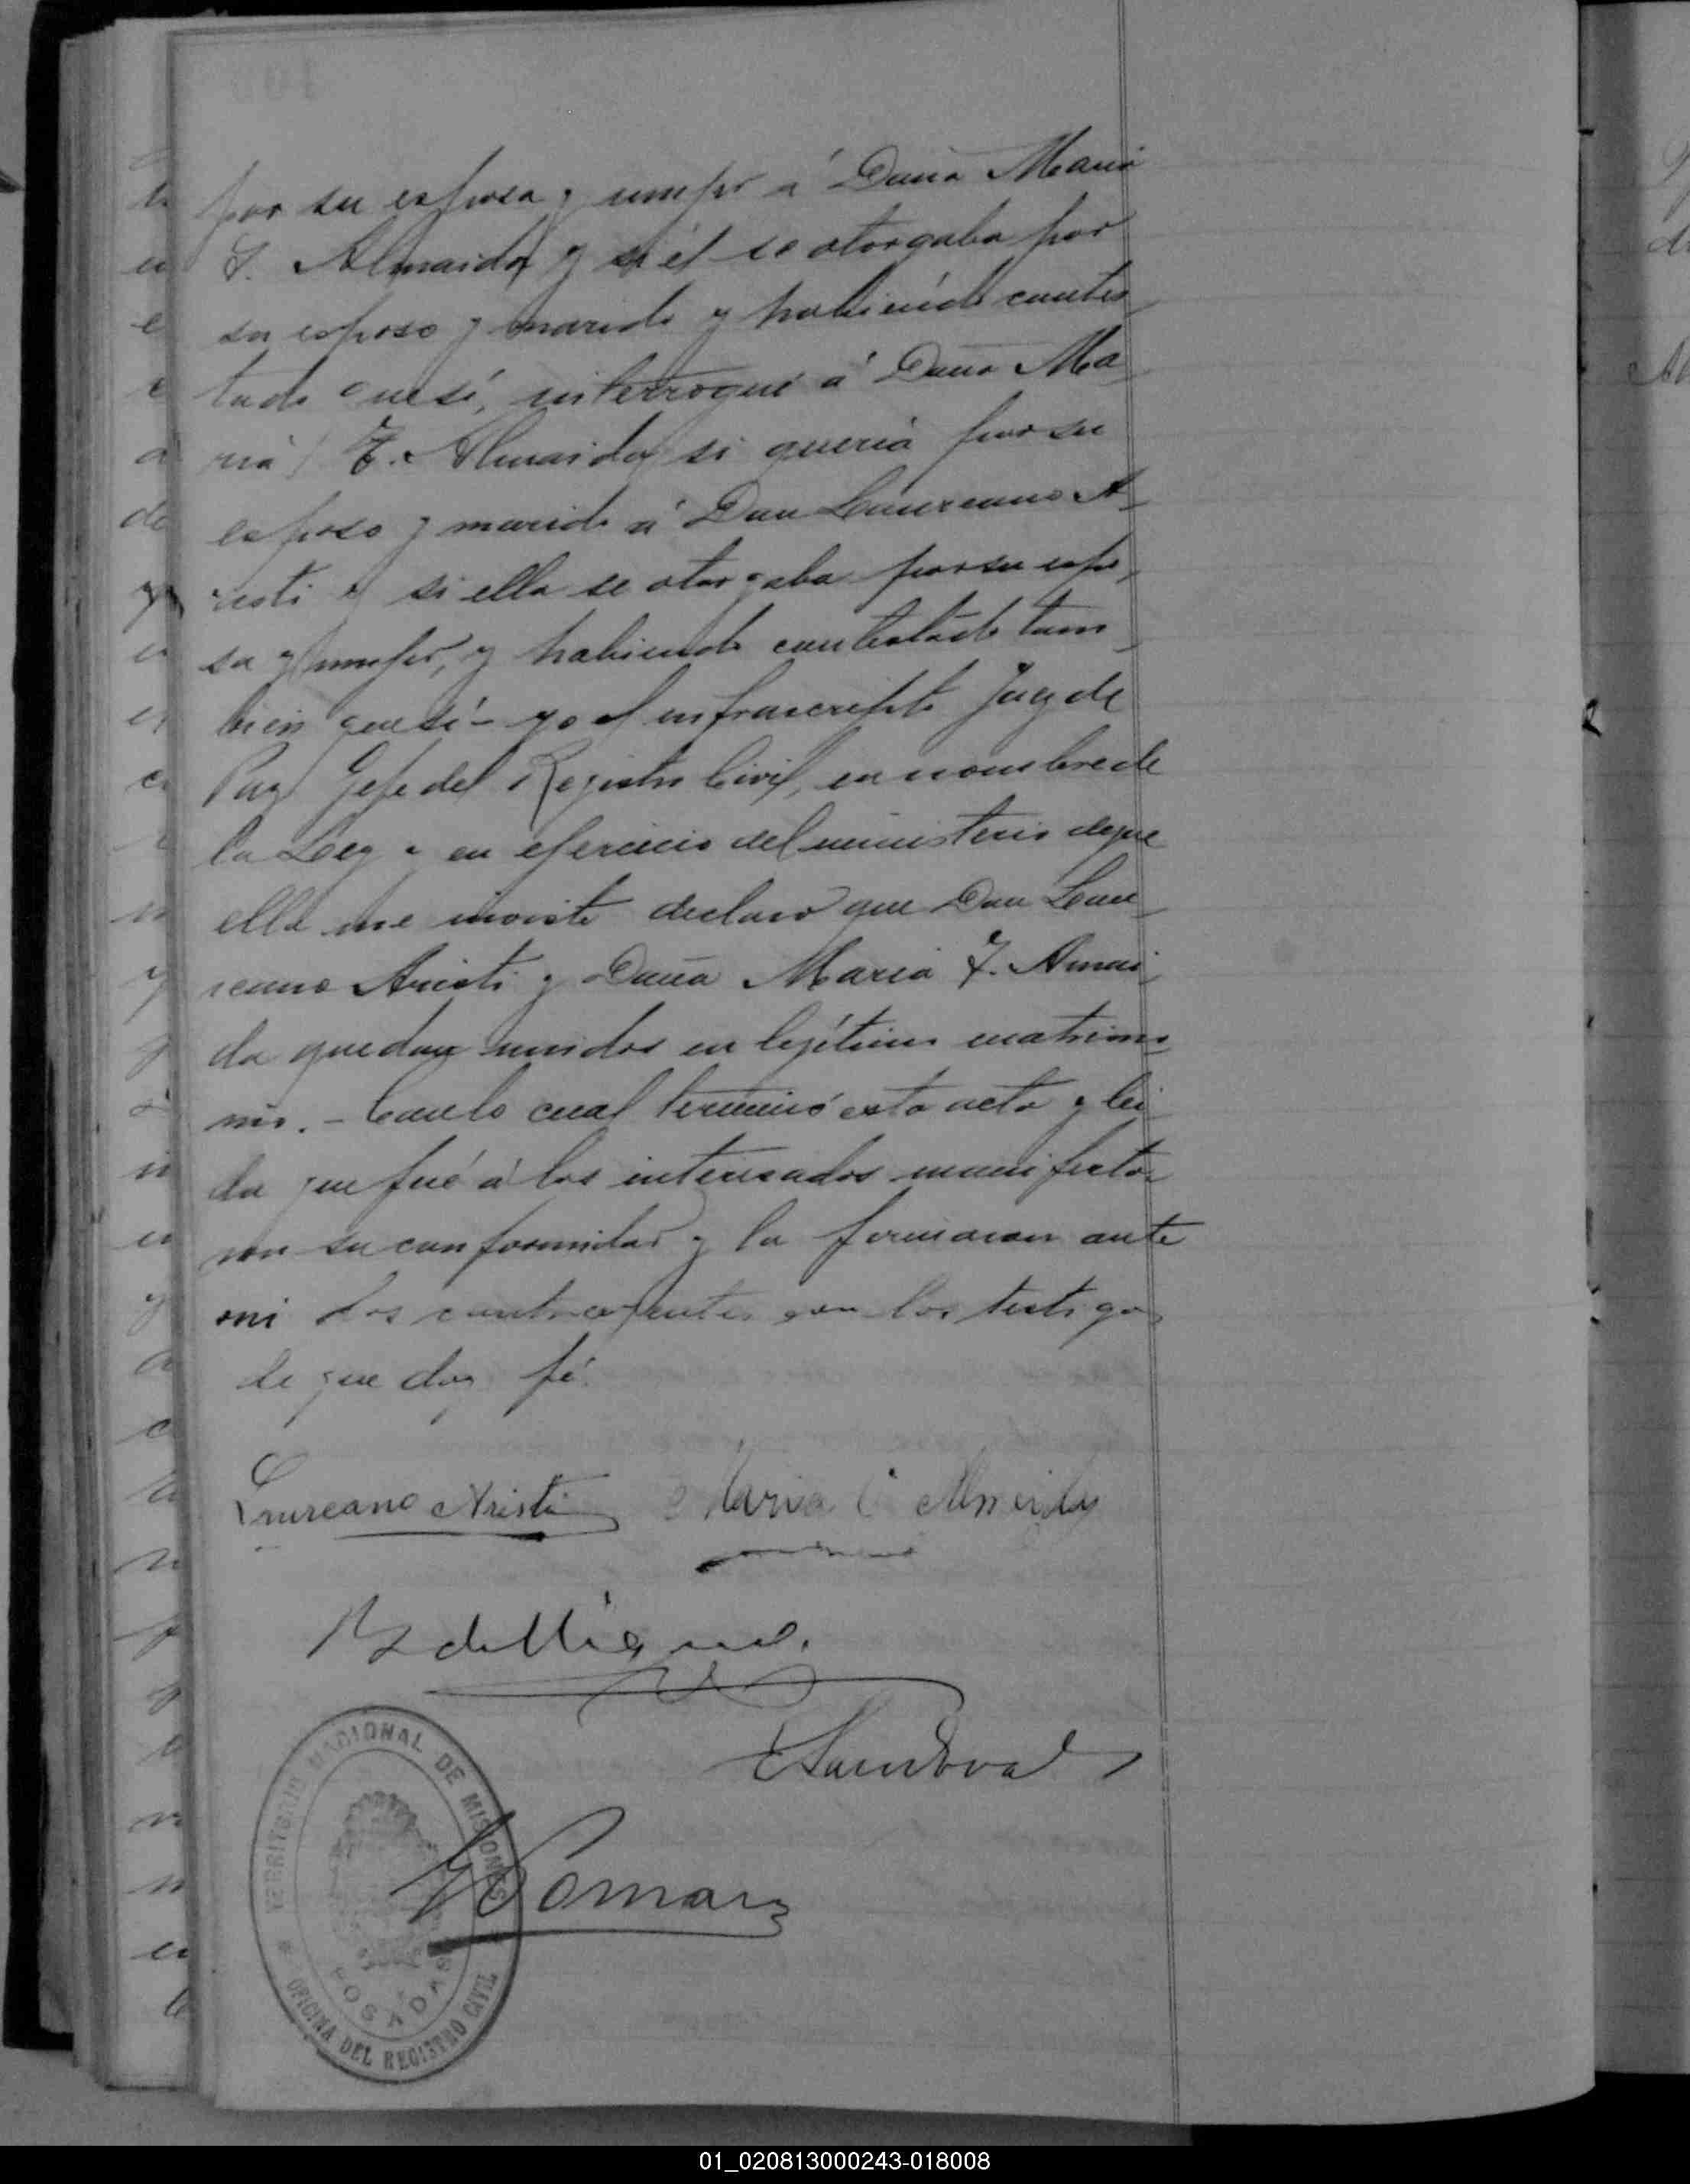 por su esposa y mujer á Doña Maria
T. Almaida y si él se otorgaba por
su esposo y marido y habiendo contes
tado que sí, interrogué á Doña Ma
ria T. Almaida si queria por su
esposo y marido á Don Laureano A
risti y si ella se otorgaba por su espo
sa y mujer, y habiendo contestado tam
bien que sí - yo el infrascripto Juez de
Paz Gefe del Registro Civil, en nombre de
la Ley y en ejercicio del ministerio de que
ella me inviste declaro que Don Lau
reano Aristi y Doña Maria T. Amai
da quedan unidos en legítimo matrimo
nio. - Con lo cual terminó esta acta y lei
da que fué á los interesados manifesta
ron su conformidad y la firmaron ante
mi los contrayentes con los testigos
de que doy fé.
Laureano Aristi Maria Almeida
E Sandoval
TERRITORIO NACIONAL DE MISIONES
POSADAS
OFICINA DEL REGISTRO CIVIL
01_020813000243-018008